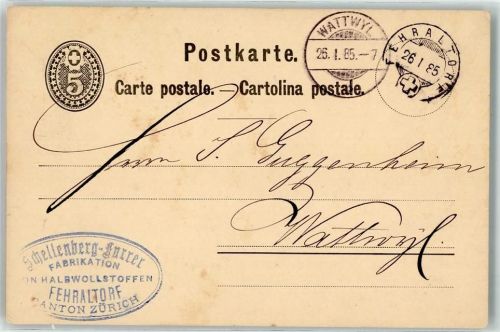 WATTWYL
26. I. 85.-7
FEHRALTORF
26 I 85
Postkarte.
5
Carte postale. — Cartolina postale.
Herrn S. Guggenheim
Wattwyl.
Schellenberg-Furrer
FABRIKATION
VON HALBWOLLSTOFFEN
FEHRALTORF
KANTON ZÜRICH